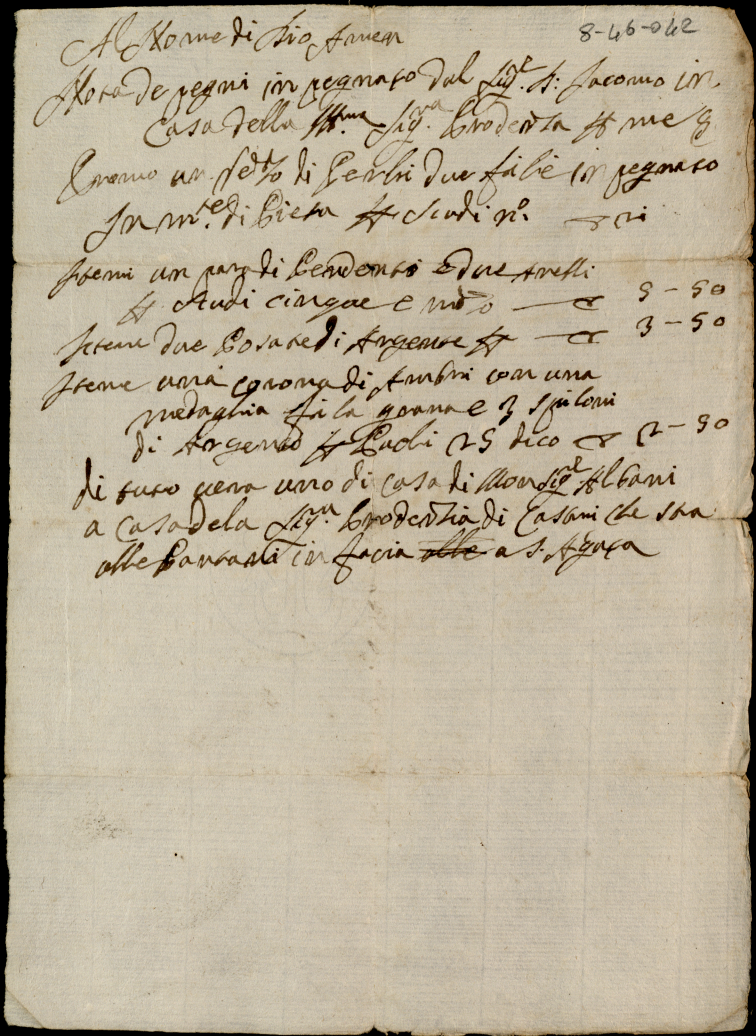 8-46-042
Al Nome di Dio Amen
Nota de pegni inpegnato dal Sigre D: Jacomo in
Casa della Illma Sigra Prodenza
Promo un di Perli due file inpegnato
In mte di Pieta Scudi no. 21
Itemi un paro di Pendenti e due anelli
Scudi cinque e mo 5-50
Iteme due Posate di Argente 3-50
Iteme una corona di Ambri con una
medaglia fila grana e 3 spiloni
di Argento Paoli 25 dico 2-50
di tuto vera uno di casa di Monsigre Albani
a casa dela Sigra Prodentia di Casani che sta
alle Pantani in facia alle a S. Agata